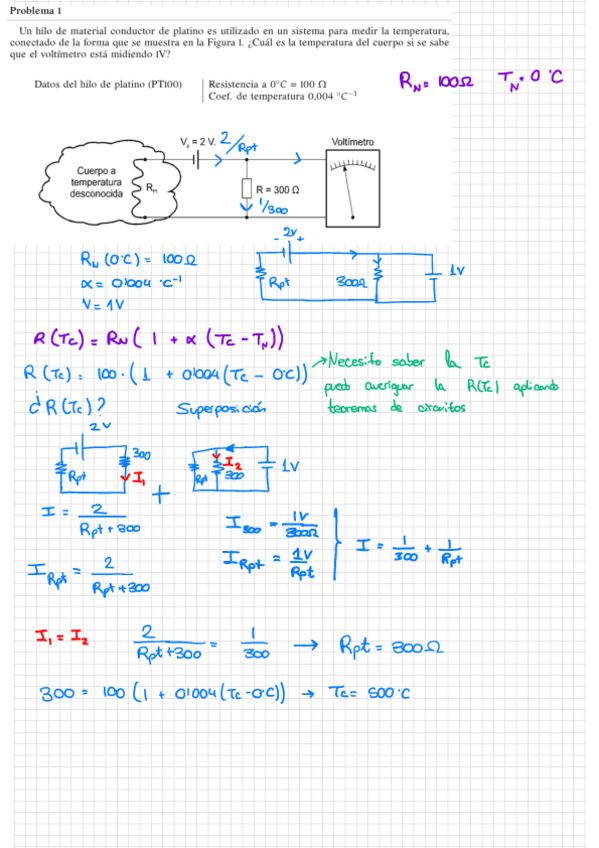 Problema 1
Un hilo de material conductor de platino es utilizado en un sistema para medir la temperatura,
conectado de la forma que se muestra en la Figura 1. ¿Cuál es la temperatura del cuerpo si se sabe
que el voltímetro está midiendo 1V?
Datos del hilo de platino (PT100)
Resistencia a 0°C = 100 Ω
Coef. de temperatura 0,004 °C⁻¹
R_N = 100Ω T_N = 0°C
V_s = 2 V. 2/Rpt
Voltímetro
Cuerpo a
temperatura
desconocida
R_n
R = 300 Ω
1/300
- 2V +
Rpt 300Ω 1V
R_N (0°C) = 100Ω
α = 0'004 °C⁻¹
V = 1V
R(Tc) = R_N (1 + α (Tc - T_N))
R(Tc) = 100 · (1 + 0'004 (Tc - 0°C))
→ Necesito saber la Tc
puedo averiguar la R(Tc) aplicando
teoremas de circuitos
¿R(Tc)? Superposición
2V
Rpt 300 I₁ + Rpt I₂ 300 1V
I = 2 / (Rpt + 300)
I_300 = 1V / 300Ω
I_Rpt = 1V / Rpt
I = 1/300 + 1/Rpt
I_Rpt = 2 / (Rpt + 300)
I₁ = I₂ 2 / (Rpt + 300) = 1/300 → Rpt = 300Ω
300 = 100 (1 + 0'004 (Tc - 0°C)) → Tc = 500°C